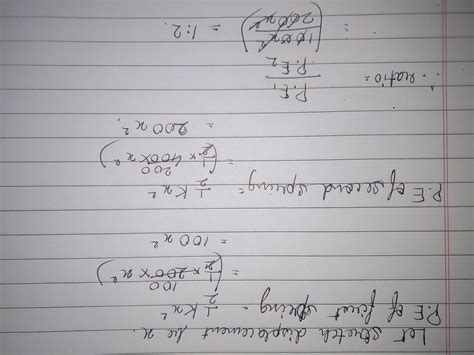 Let stretch displacement be x.
P.E of first spring - 1/2 Kx²
= (1/2 × 200 100 × x²)
= 100 x²
P.E of second spring = 1/2 Kx²
= (1/2 × 400 200 × x²)
= 200 x².
∴ ratio = P.E₁/P.E₂
= (100x²/200x²) = 1:2.